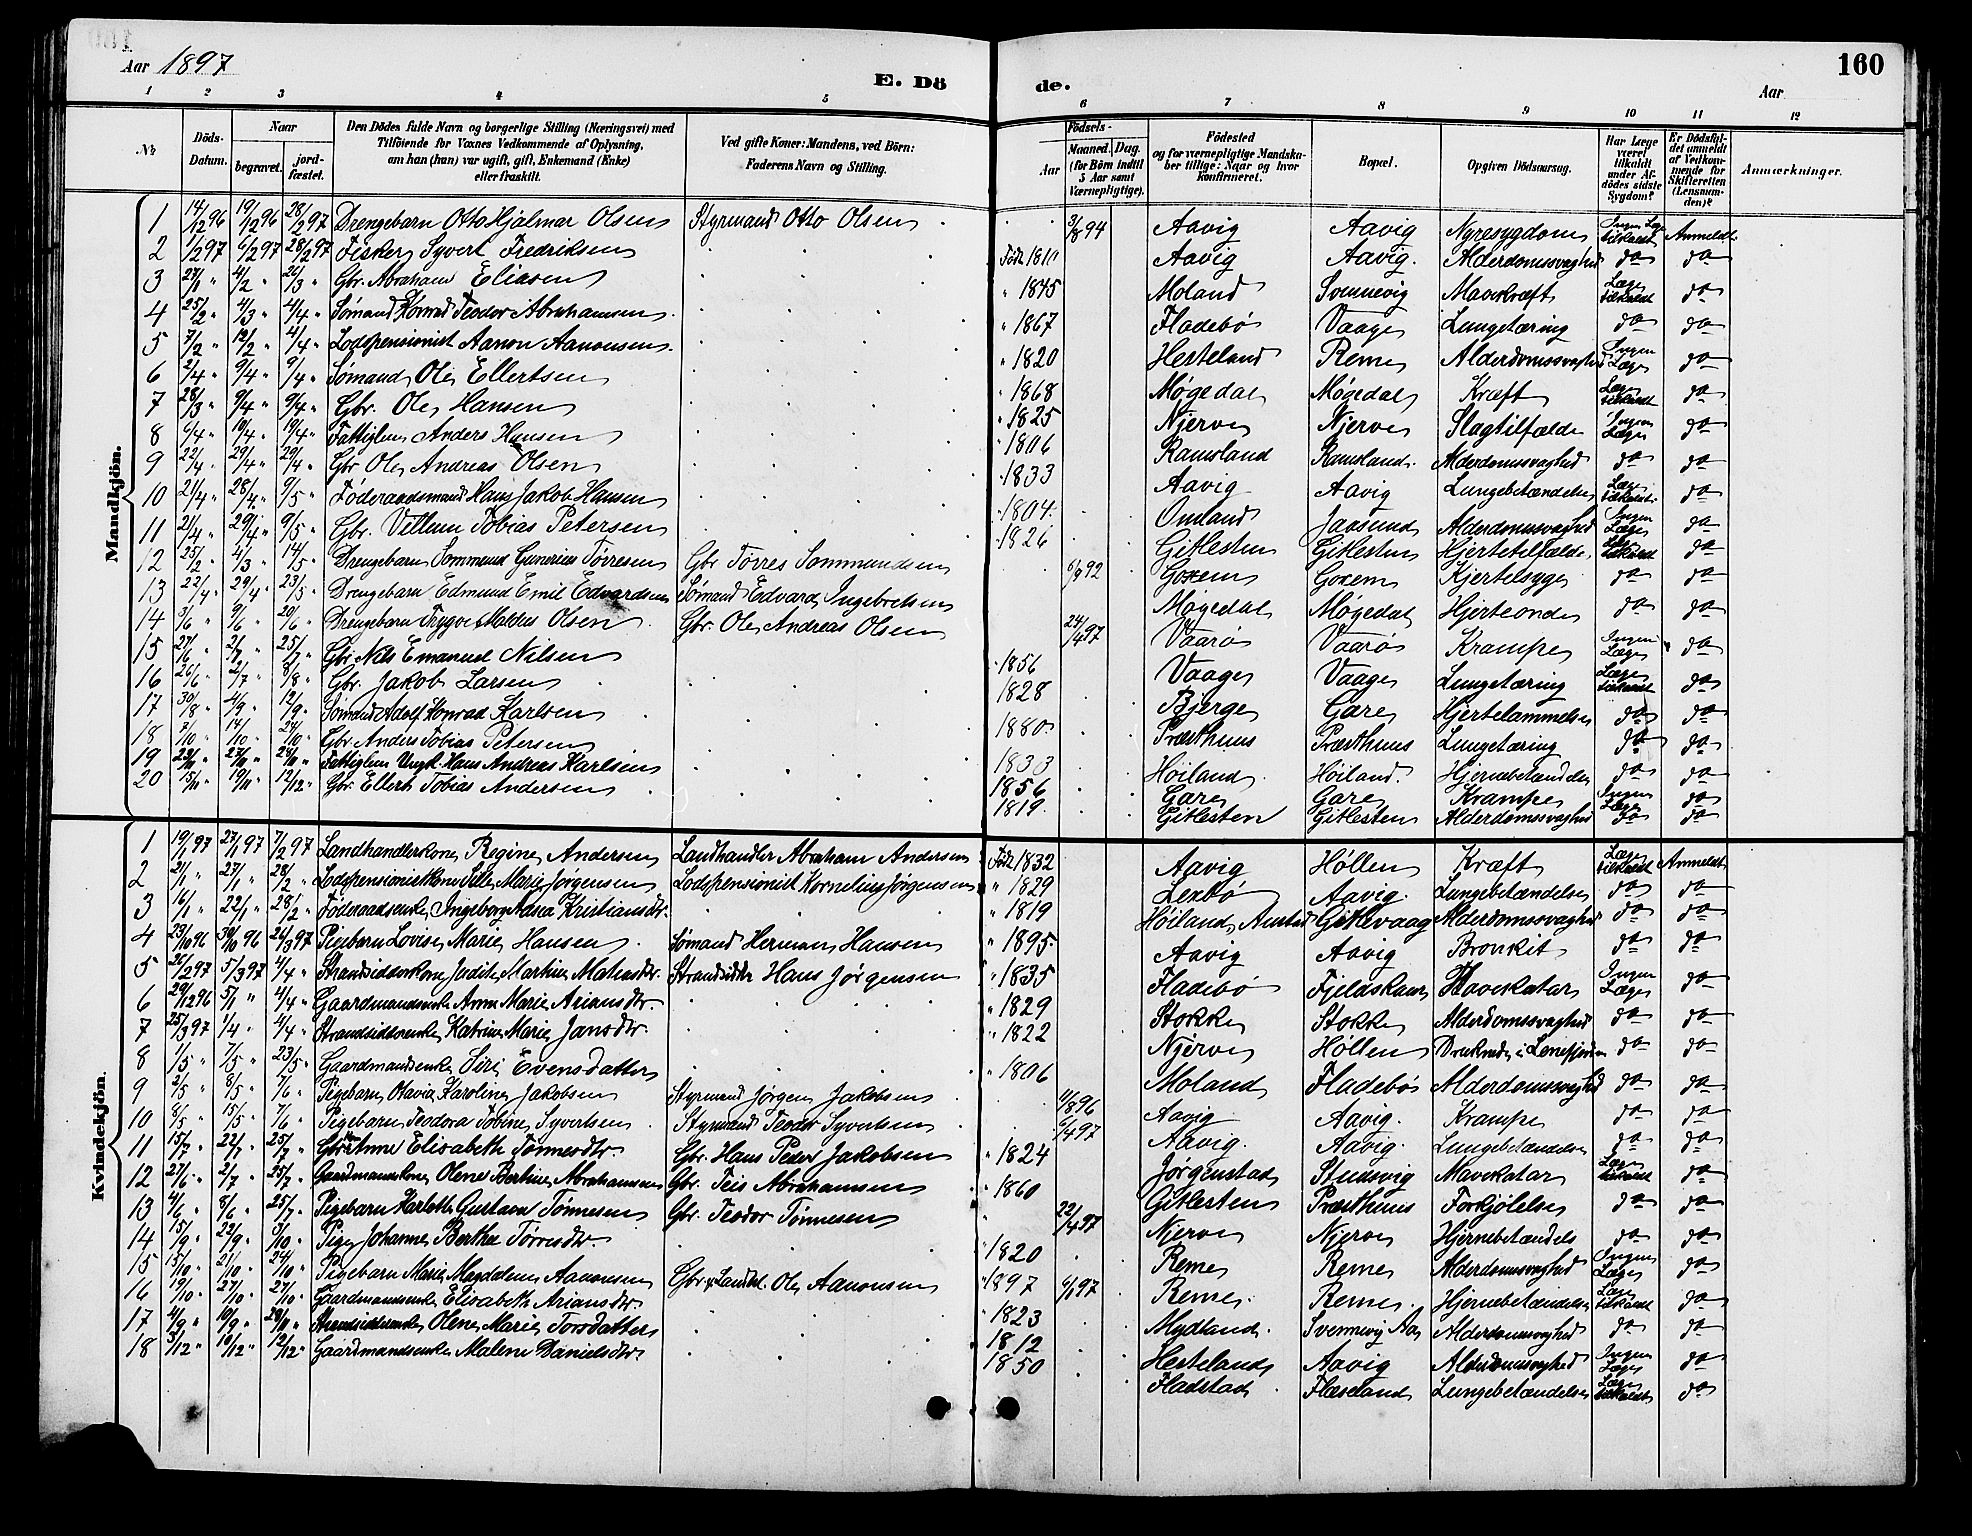 Aar 1897
E. Dö
de.
Aar
160
1 2 3 4 5 6 7 8 9 10 11 12
No
Döds-Datum.
Naar
begravet.
jord-fæstet.
Den Dödes fulde Navn og borgerlige Stilling (Næringsvei) med
Tilföiende for Voxnes Vedkommende af Oplysning,
om han (hun) var ugift, gift, Enkemand (Enke)
eller fraskilt.
Ved gifte Koner: Mandens, ved Börn:
Faderens Navn og Stilling.
Födsels-
Aar
Maaned. Dag.
(for Börn indtil
5 Aar samt
Værnepligtige).
Födested
og for værnepligtige Mandska-
ber tillige: Naar og hvor
konfirmeret.
Bopæl.
Opgiven Dödsaarsag.
Har Læge
været
tilkaldt
under Af-
dödes sidste
Sygdom?
Er Dödsfal-
det anmeldt
af Vedkom-
mende for
Skifteretten
(Lensman-
den)?
Anmærkninger.
Mandkjön.
1 14/12 96 19/12 96 28/2 97 Drengebarn Otto Hjalmar Olsen Styrmand Otto Olsen 3/8 94 Aavig Aavig Nyresygdom Ingen Læge tilkaldt Anmeldt
2 1/2 97 6/2 97 28/2 97 Fisker Syvert Fredriksen Født 1810 Aavig Aavig. Alderdomssvaghed do do
3 27/1 " 4/2 " 26/3 " Gbr. Abraham Eliasen " 1845 Moland Svennevig Mavekræft Læge tilkaldt do
4 25/2 " 4/3 " 4/4 " Sømand Konrad Teodor Abrahamsen " 1867 Fladebø Vaage Lungetæring do do
5 7/2 " 12/2 " 4/4 " Lodspensionist Aanon Aanonsen " 1820 Hesteland Reme Alderdomssvaghed Ingen Læge do
6 2/4 " 9/4 " 9/4 " Sømand Ole Ellertsen " 1868 Møgedal Møgedal Kræft Læge tilkaldt do
7 28/3 " 9/4 " 9/4 " Gbr. Ole Hansen " 1825 Njerve Njerve Slagtilfælde Ingen Læge do
8 6/4 " 19/4 " 19/4 " Fattiglem Anders Hansen " 1806 Ramsland Ramsland. Alderdomssvaghed do do
9 22/4 " 29/4 " 29/4 " Gbr Ole Andreas Olsen " 1833 Aavig Aavig Lungebetændelse Læge tilkaldt do
10 21/4 " 28/4 " 9/5 " Føderaadsmand Hans Jakob Hansen 1804 Omland Jaasund Alderdomssvaghed Ingen Læge do
11 21/4 " 29/4 " 9/5 " Gbr. Villum Tobias Petersen " 1826 Gitlesten Gitlesten Hjertetilfælde Læge tilkaldt do
12 25/2 " 4/3 " 14/5 " Drengebarn Sommund Gunerius Tørresen Gbr Tørres Sommundsen 6/9 92 Goxem Goxem Kjertelsyge do do
13 22/4 " 29/4 " 23/5 " Drengebarn Edmund Emil Edvardsen Sømand Edvard Ingebretsen Møgedal Møgedal Hjerteonde do do
14 3/6 " 9/6 " 20/6 " Drengebarn Trygve Maldus Olsen Gbr. Ole Andreas Olsen 24/4 97 Vaarø Vaarø Krampe Ingen Læge do
15 27/6 " 2/7 " 25/7 " Gbr Nils Emanuel Nilsen " 1856 Vaage Vaage Lungetæring Læge tilkaldt do
16 26/6 " 2/7 " 8/8 " Gbr. Jakob Larsen 1828 Bjerge Gare Hjertelammelse do do
17 30/8 " 4/9 " 12/9 " Sømand Adolf Konrad Karlsen 1880 Præsthuus Præsthuus Lungetæring do do
18 7/10 " 14/10 " 24/10 " Gbr Anders Tobias Petersen 1833 Høiland Høiland. Hjernebetændelse do do
19 22/11 " 27/11 " 28/11 " Fattiglem Ungk. Hans Andreas Karlsen 1856 Gare Gare Krampe Ingen Læge do
20 15/11 " 19/11 " 12/12 " Gbr. Ellert Tobias Andersen 1819 Gitlesten Gitlesten Alderdomssvaghed do do
Kvindekjön.
1 19/1 97 27/1 97 7/2 97 Landhandlerkone Regine Andersen Landhandler Abraham Andersen Født 1832 Aavig Høllen Kræft Læge tilkaldt Anmeldt
2 21/1 " 27/1 " 28/2 " Lodspensionistkone Sille Marie Jørgensen Lodspensionist Kornelius Jørgensen " 1829 Lexbø Aavig. Lungebetændelse do do
3 16/1 " 22/1 " 28/2 " Føderaadsenke Ingeborg Kristiansdtr. " 1819 Høiland, Austad Gitlevaag Alderdomssvaghed do do
4 23/10 96 30/10 96 26/3 97 Pigebarn Lovise Marie Hansen Sømand Herman Hansen " 1895 Aavig Aavig Bronkit do do
5 26/2 97 5/3 97 4/4 " Strandsidderkone Jodite Martine Matiasdtr. Strandsidder Hans Jørgensen " 1835 Fladebø Fjeldskaar Mavekatar Ingen Læge do
6 29/12 96 5/1 " 4/4 " Gaardmandsenke Anne Marie Ariansdtr. " 1829 Stokke Stokke Alderdomssvaghed do do
7 25/3 97 1/4 " 4/4 " Strandsidderenke Katrine Marie Jansdtr. " 1822 Njerve Høllen Druknede i Lenefjorden do do
8 1/5 " 7/5 " 23/5 " Gaardmandsenke Siri Evensdatter " 1806 Moland Fladebø Alderdomssvaghed do do
9 2/5 " 8/5 " 7/6 " Pigebarn Otavia Karoline Jakobsen Styrmand Jørgen Jakobsen 11/8 96 Aavig Aavig. Krampe do do
10 8/5 " 15/5 " 7/6 " Pigebarn Teodora Tobine Syvertsen Styrmand Teodor Syvertsen 6/4 97 Aavig. Aavig. Lungebetændelse do do
11 15/7 " 22/7 " 25/7 " Gbr Anne Elisabeth Tønnesdtr Gbr. Hans Peder Jakobsen " 1824 Jørgenstad Studsvig Mavekatar Læge tilkaldt do
12 27/6 " 2/7 " 25/7 " Gaardmandskone Olene Bertine Abrahamsen Gbr. Teis Abrahamsen " 1860 Gitlesten Præsthuus Forkjølelse do do
13 4/6 " 8/6 " 25/7 " Pigebarn Karlotte Gustava Tønnesen Gbr. Teodor Tønnesen 22/4 97 Njerve Njerve Hjernebetændels do do
14 15/9 " 22/9 " 3/10 " Pige Johanne Berthe Tørresdtr. " 1820 Reme Reme Alderdomssvaghed Ingen Læge do
15 15/10 " 21/10 " 24/10 " Pigebarn Marie Magdalene Aanonsen Gbr. & Landhd. Ole Aanonsen " 1897 6/1 97 Reme Reme. Hjernebetændelse Læge tilkaldt do
16 19/10 " 27/10 " 27/10 " Gaardmandsenke Elisabeth Ariansdtr " 1823 Mydland. Svennevig Alderdomssvaghed do do
17 4/9 " 10/9 " 28/11 " Strandsidderenke Olene Marie Torsdatter 1812 Hesteland Aavig Alderdomssvaghed Ingen Læge do
18 3/12 " 10/12 " 12/12 " Gaardmandsenke Malene Danielsdtr 1850 Fladstad Flæseland Lungebetændelse Læge tilkaldt do